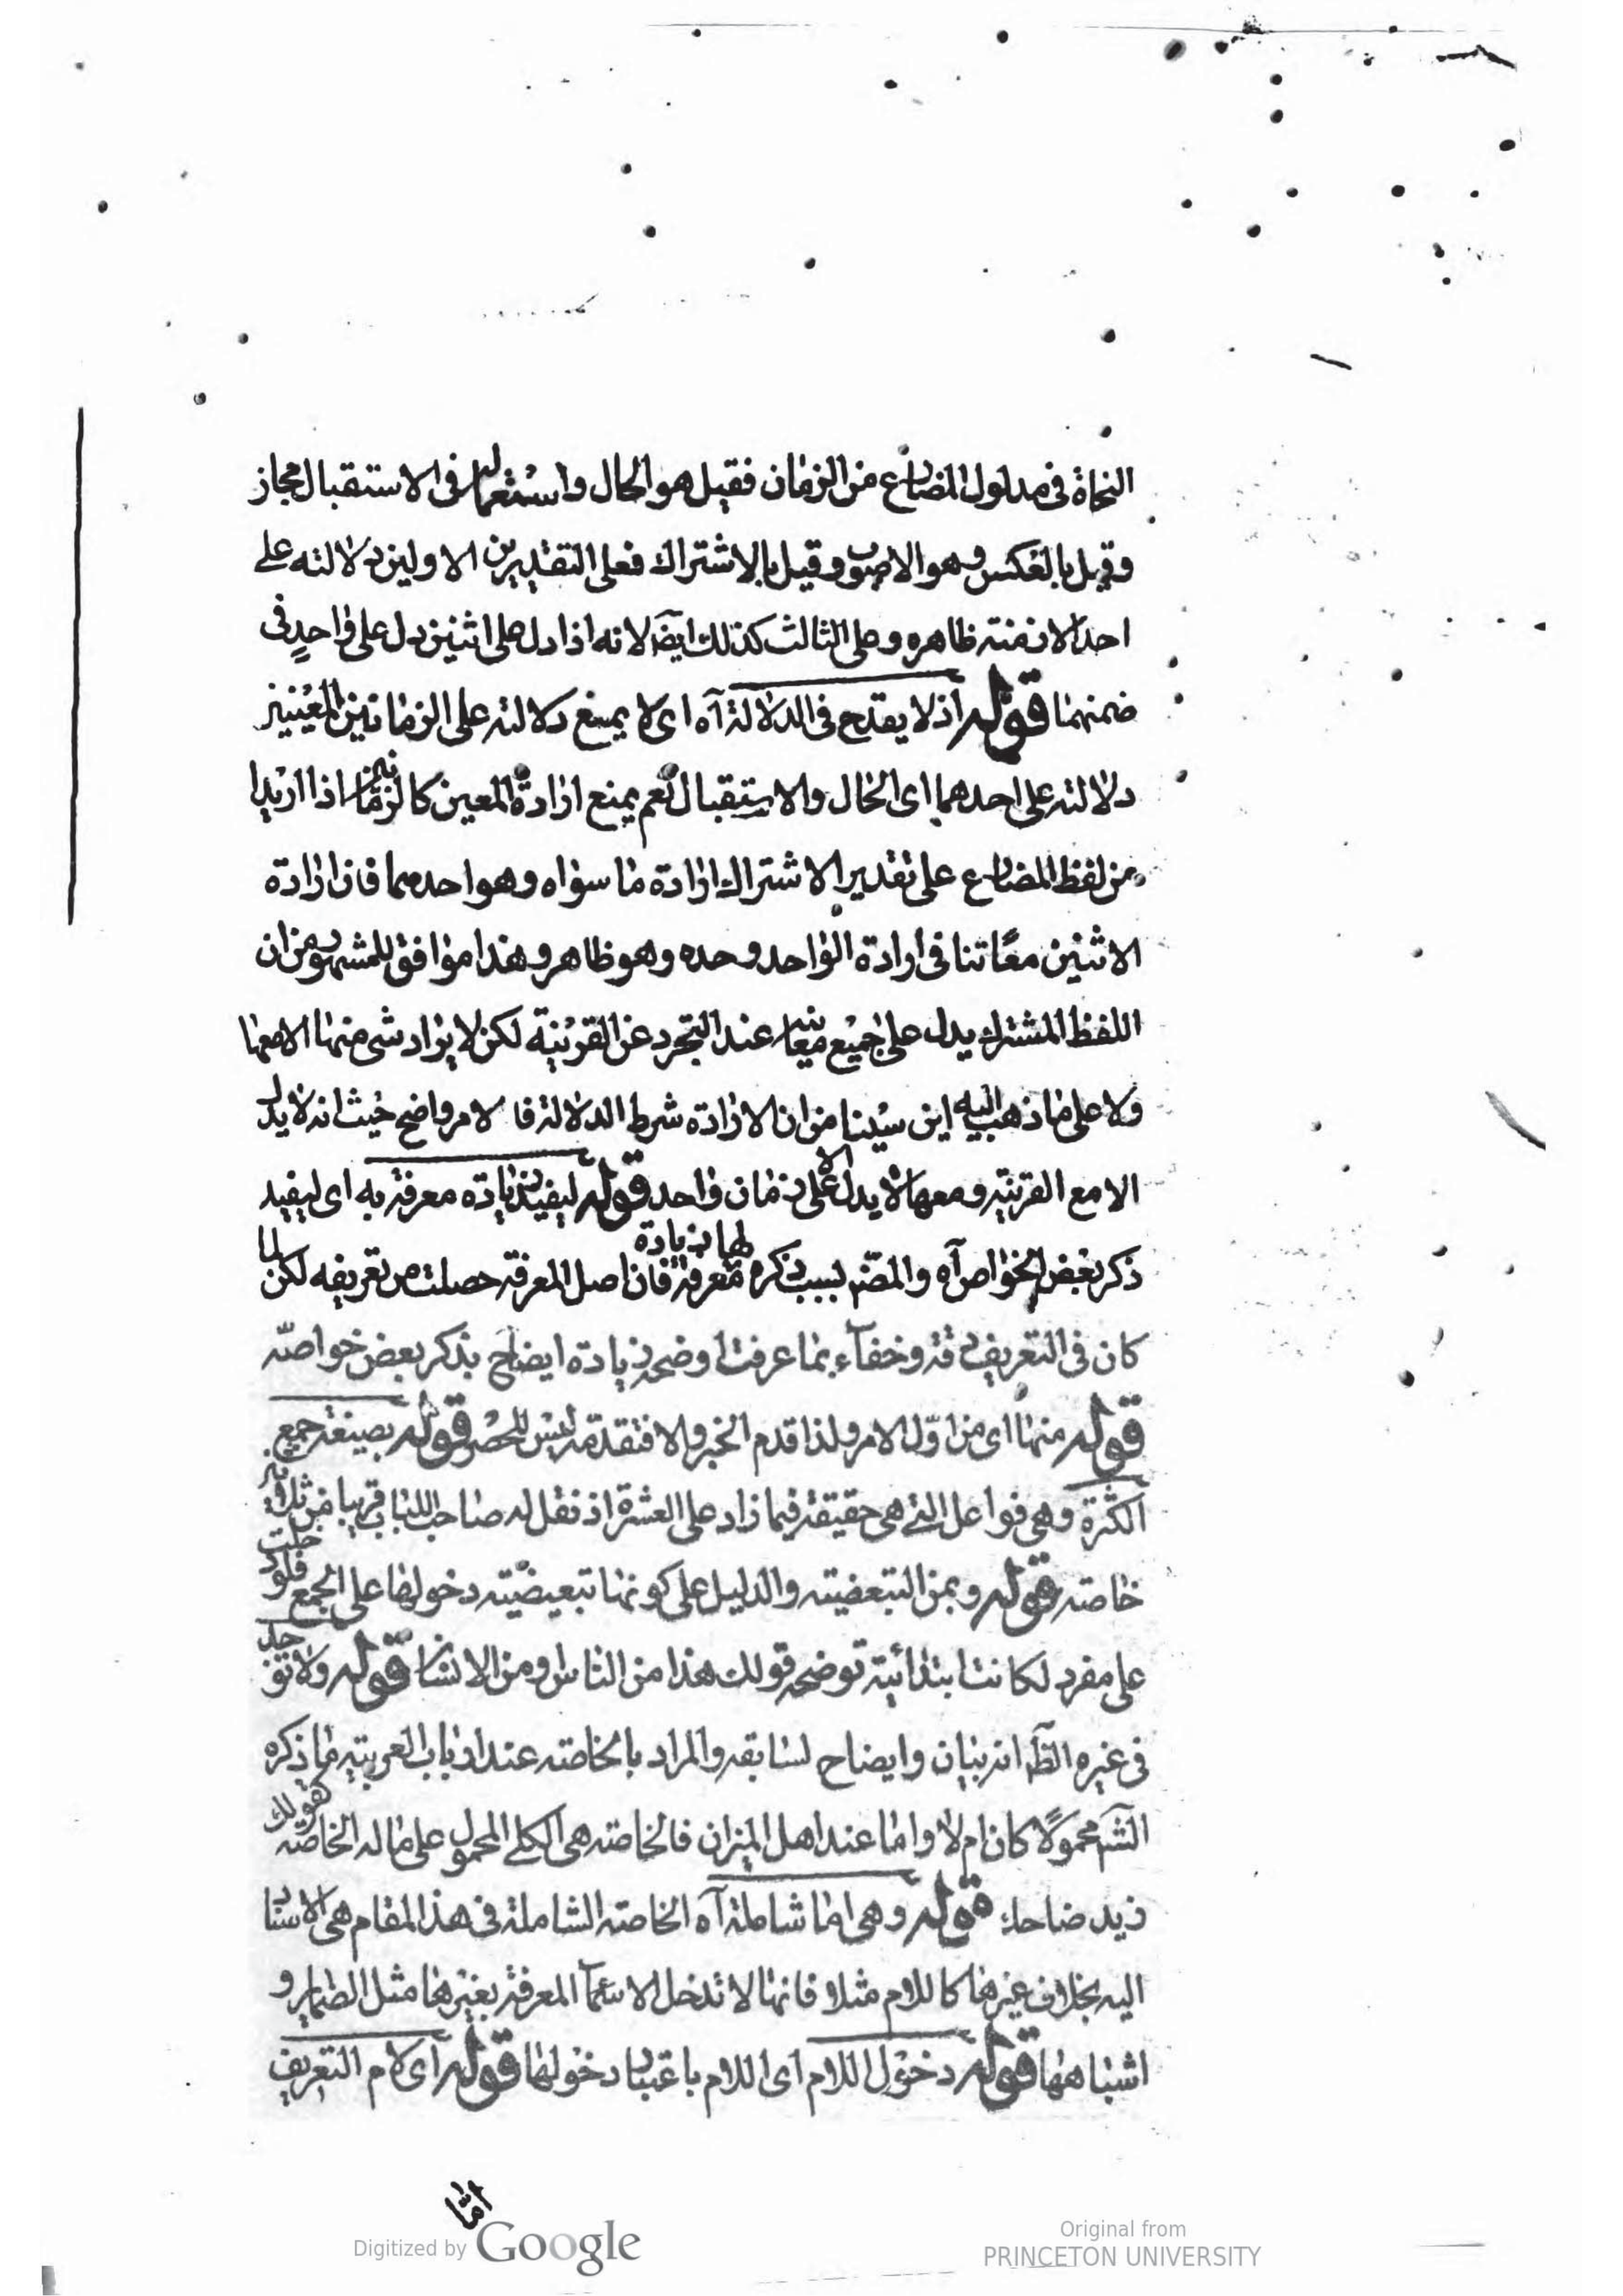 النحاة فى مدلول المضارع من الزمان فقيل هو الحال واستعماله فى الاستقبال مجاز
وقيل بالعكس وهو الاصوب وقيل بالاشتراك فعلى التقديرين الاولين دلالته على
احد الازمنته ظاهره وعلى الثالث كذلك ايضا لانه اذا دل على اثنين دل على واحد فى
ضمنهما قوله اذ لا يقدح فى الدلالة آه اى لا يمنع دلالته على الزمانين المعينين
دلالته على احدهما اى الحال والاستقبال نعم يمنع ارادة المعين كالزمانين اذا اريدا
من لفظ المضارع على تقدير الاشتراك ارادة ما سواه وهو احدهما فان ارادة
الاثنين معًا تنافى ارادة الواحد وحده وهو ظاهر وهذا موافق للمشهور من ان
اللفظ المشترك يدل على جميع معانيه عند التجرد عن القرينة لكن لا يراد شى منها الا معها
ولا على ما ذهب اليه ابن سينا من ان الارادة شرط الدلالة فا لامر واضح حيث انه لا يدل
الا مع القرينة ومعها لا يدل الا على زمان واحد قوله ليفيد زيادة معرفة به اى ليفيد
ذكر بعض الخواص آه والمصّ بسبب ذكره لها زيادة معرفة فان اصل المعرفة حصلت من تعريفه لكن لما
كان فى التعريف دقة وخفاء بما عرفت اوضحه زيادة ايضاح بذكر بعض خواصّه
قوله منها اى من اوّل الامر ولذا قدم الخبر والا فتقدمه ليس للحصر قوله بصيغة جمع
الكثرة وهى فواعل التى هى حقيقة فيما زاد على العشرة اذ نقل له صاحب اللباب قريبا من ثلاثين
خاصته قوله وبمن التبعضيته والدليل على كونها تبعيضيّته دخولها على الجمع فلو دخلت
على مفرد لكانت ابتدائيته توضحه قولك هذا من الناس ومن الانسان قوله ولا توجد
فى غيره الظّ انه بيان وايضاح لسابقه والمراد بالخاصته عند ارباب العربيته ما ذكره
الشّ محمولًا كان ام لا واما عند اهل الميزان فالخاصته هى الكلى المحمول على ماله الخاصته كقولك
زيد ضاحك قوله وهى اما شاملة آه الخاصته الشاملة فى هذا المقام هى الاسناد
اليه بخلاف غيرها كاللام مثلا فانها لا تدخل الاسماء المعرفة بغيرها مثل الضماير و
اشباهها قوله دخول اللام اى اللام باعتبار دخولها قوله اى لام التعريف
امّا
Digitized by Google
Original from
PRINCETON UNIVERSITY